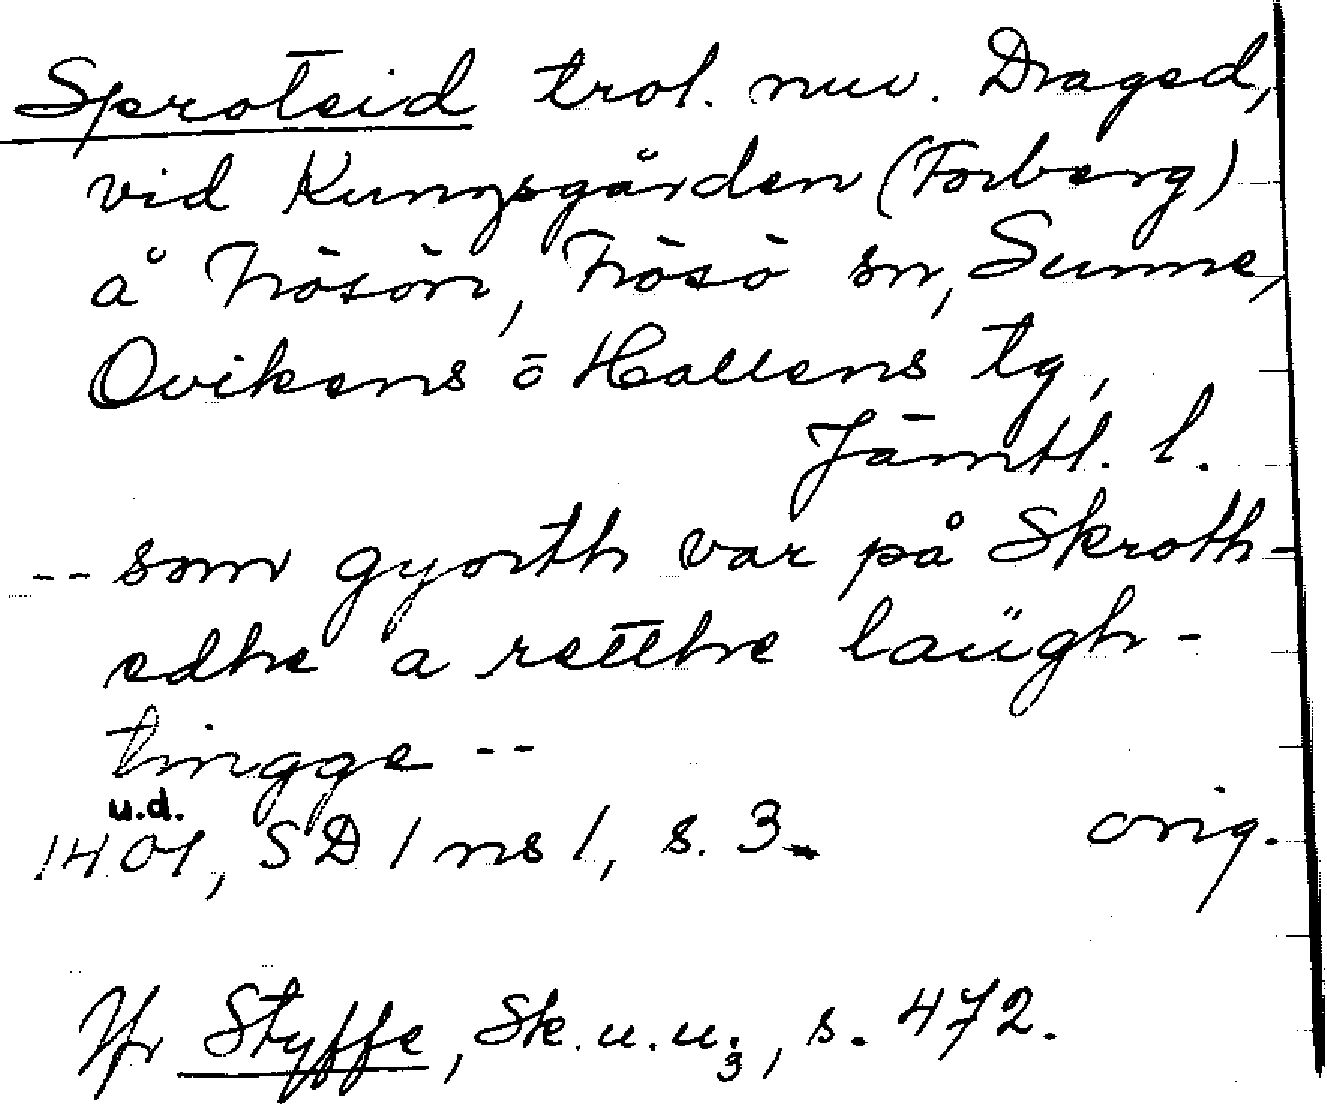 Sproteid trol. nuv. Draged,
vid Kungsgården (Torberg)
å Frösön, Frösö sn, Sunne,
Ovikens o Hallens tg,
Jämtl. l.
-- som gyorth var på Skroth-
edhe a retthe laügh-
tingge --
u.d.
1401, SD 1 ns 1, s. 3. orig.
Jfr Styffe, Sk.u.u.3, s. 472.